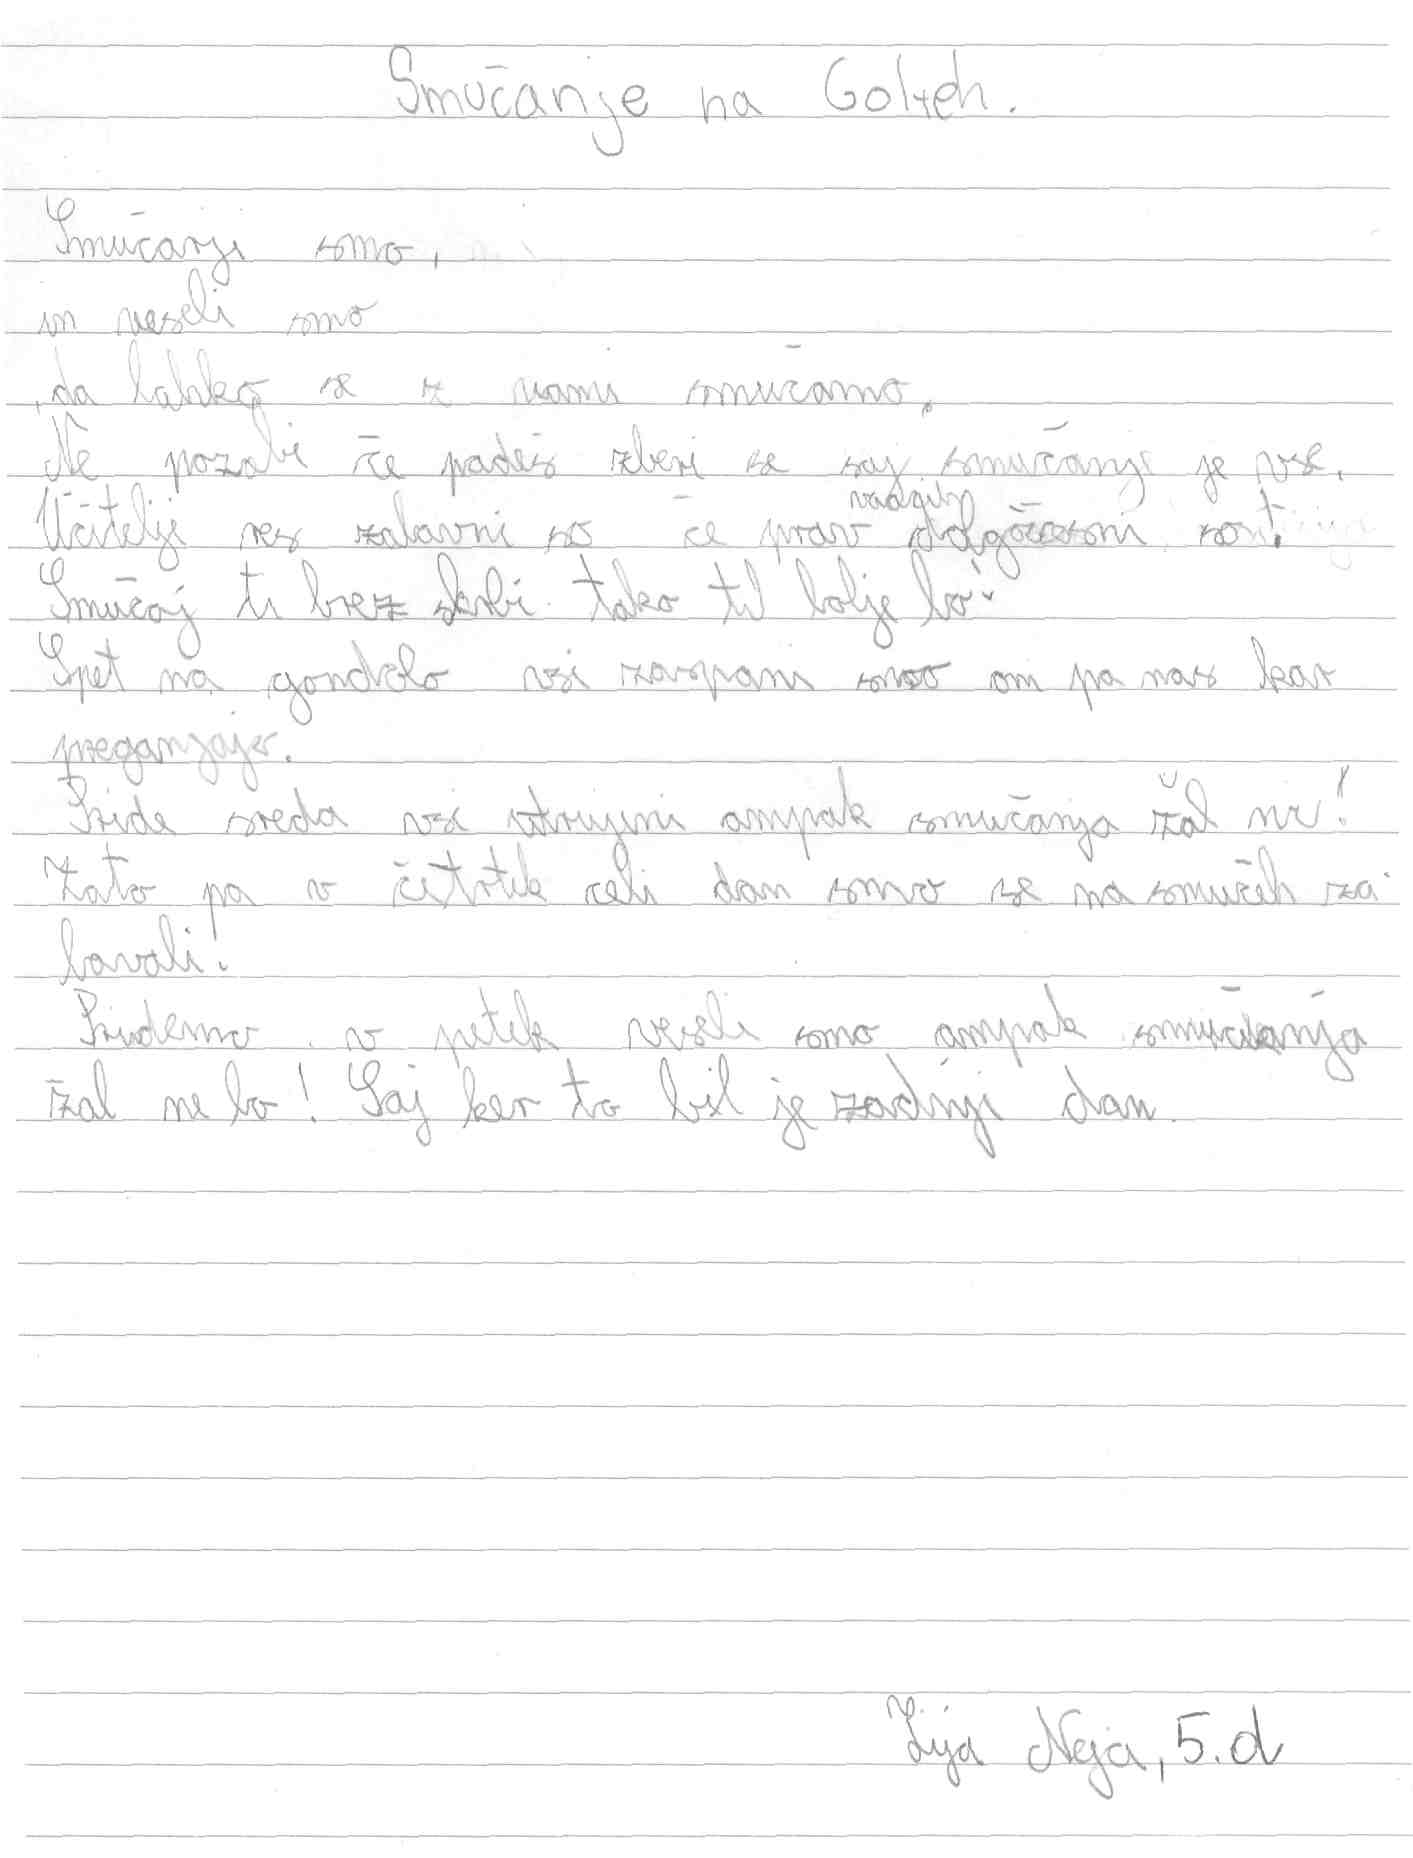 Smučanje na Golteh.
Smučarji smo,
in veseli smo
,da lahko se z vami smučamo.
Ne pozabi če padeš zberi se saj smučanje je vse.
Učitelji res zabavni so če prav včasih dolgočasni so!
Smučaj ti brez skrbi tako ti bolje bo
Spet na gondolo vsi zaspani smo oni pa nas kar
preganjajo.
Pride sreda vsi utrujeni ampak smučanja žal ni!
Zato pa v četrtek celi dan smo se na smučeh za-
bavali!
Pridemo v petek veseli smo ampak smučanja
žal ne bo! Saj ker to bil je zadnji dan.
Neja, 5.d